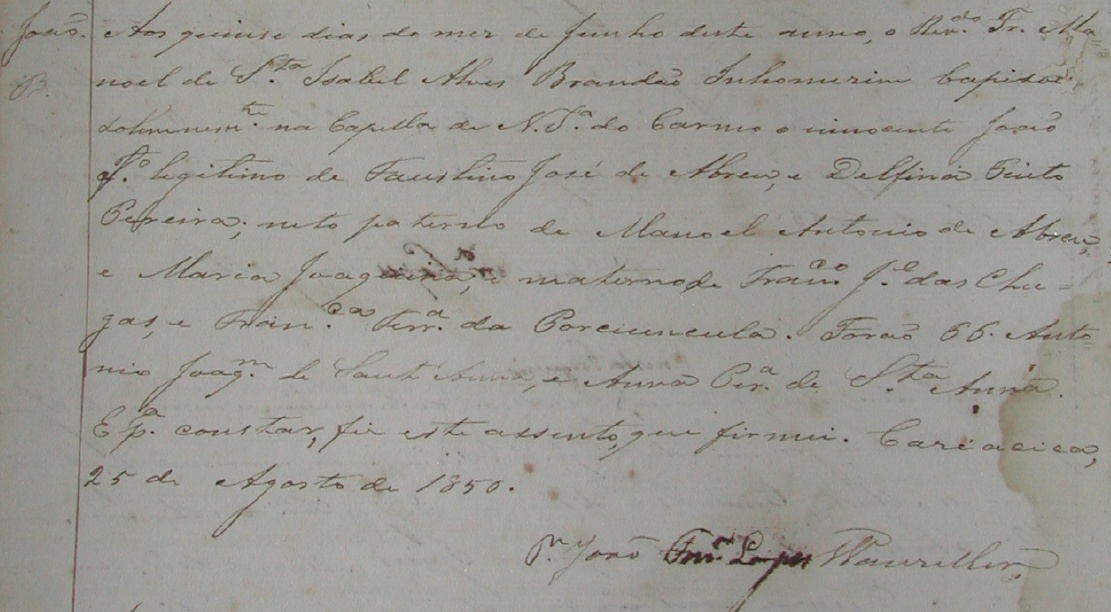 João. Aos quinse dias do mez de Junho deste anno, o Rev.do Fr. Ma=
B. noel de S.ta Isabel Alves Brandão Inhomirim bapisou
solemnem.te na Capella de N. S.ra do Carmo o innocente João
f.o legitimo de Faustino José de Abreu, e Delfina Pinto
Pereira; neto paterno de Manoel Antonio de Abreu,
e Maria Joaquina, e materno de Fran.co J.e das Cha=
gas, e Fran.ca Ferr.a da Porciuncula. Forão PP. Anto=
nio Joaq.m de Sant'Anna, e Anna Per.a de S.ta Anna.
E p.a constar, fiz este assento, que firmei. Cariacica,
25 de Agosto de 1850.
P.e João Lopes